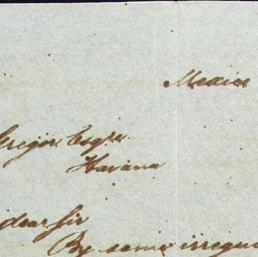 Mexico
Gregor Esqre
Havana
dear Sir
By some irregu